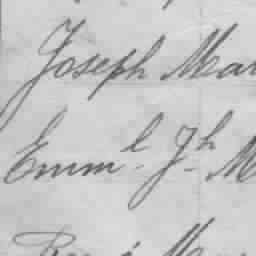 Joseph Mar
Emm.l Jh M